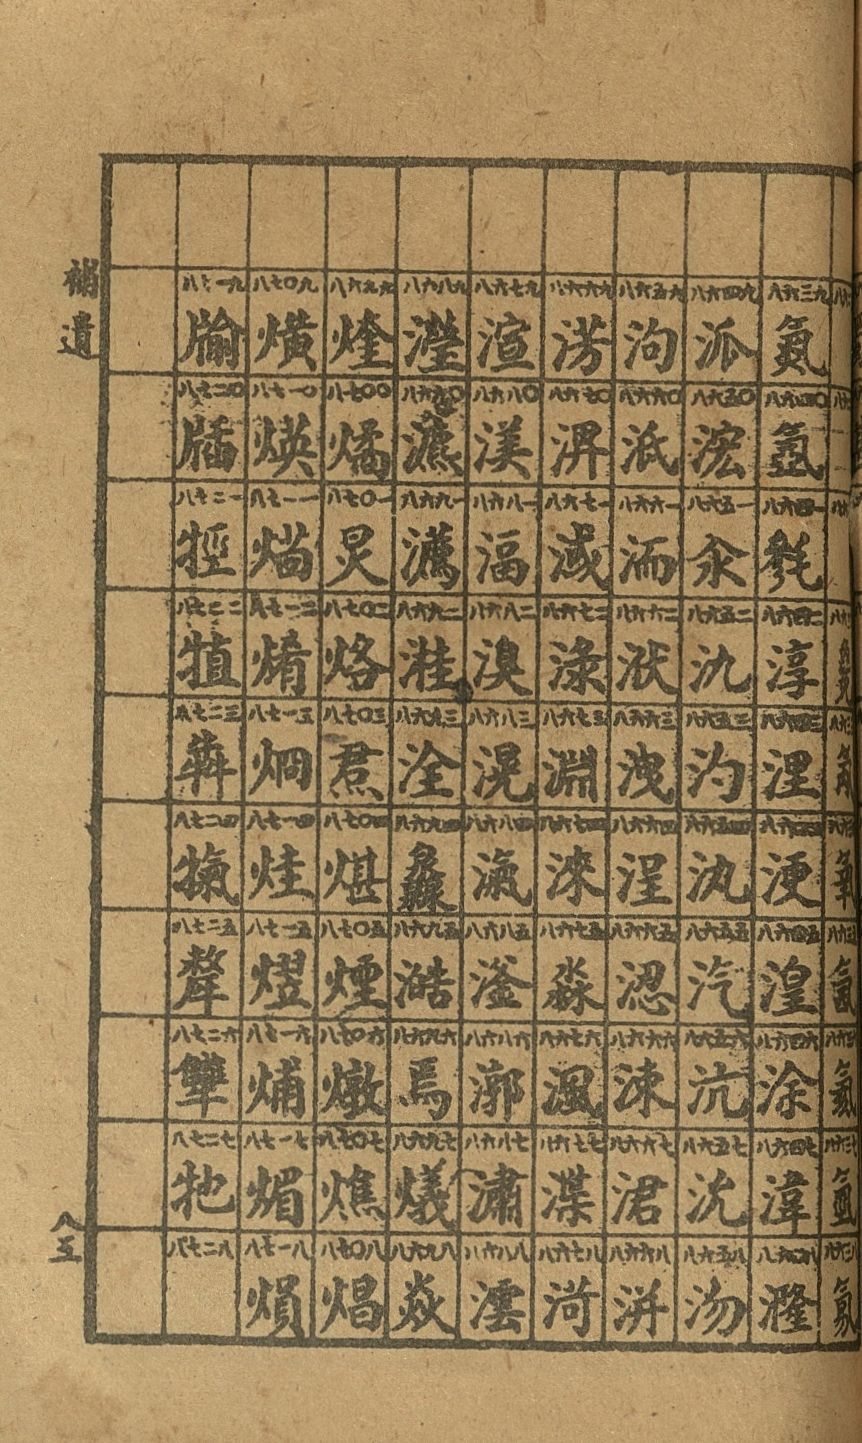 補遺
八五
八六三九 氮
八六四〇 氬
八六四一 毿
八六四二 淳
八六四三 浬
八六四四 浭
八六四五 湟
八六四六 涂
八六四七 湋
八六四八 漋
八六四九 派
八六五〇 浤
八六五一 汆
八六五二 氿
八六五三 汋
八六五四 汍
八六五五 汽
八六五六 沆
八六五七 沇
八六五八 沕
八六五九 泃
八六六〇 泜
八六六一 洏
八六六二 洑
八六六三 洩
八六六四 浧
八六六五 涊
八六六六 涑
八六六七 涒
八六六八 洴
八六六九 淓
八六七〇 淠
八六七一
八六七二 淥
八六七三 淵
八六七四 淶
八六七五 淼
八六七六 渢
八六七七 渫
八六七八 渮
八六七九 渲
八六八〇 渼
八六八一 湢
八六八二 湨
八六八三 滉
八六八四 滊
八六八五 滏
八六八六 漷
八六八七 潚
八六八八 澐
八六八九 瀅
八六九〇 瀌
八六九一
八六九二 溎
八六九三 洤
八六九四 灥
八六九五 澔
八六九六 焉
八六九七 燨
八六九八 焱
八六九九
八七〇〇 燏
八七〇一 炅
八七〇二 烙
八七〇三 焄
八七〇四 煁
八七〇五 煙
八七〇六 燉
八七〇七 燋
八七〇八 焻
八七〇九 熿
八七一〇 煐
八七一一
八七一二
八七一三 烱
八七一四 烓
八七一五 熤
八七一六 烳
八七一七 煝
八七一八 熉
八七一九 牏
八七二〇 牐
八七二一 牼
八七二二 犆
八七二三 犇
八七二四
八七二五 犛
八七二六 犨
八七二七 牠
八七二八